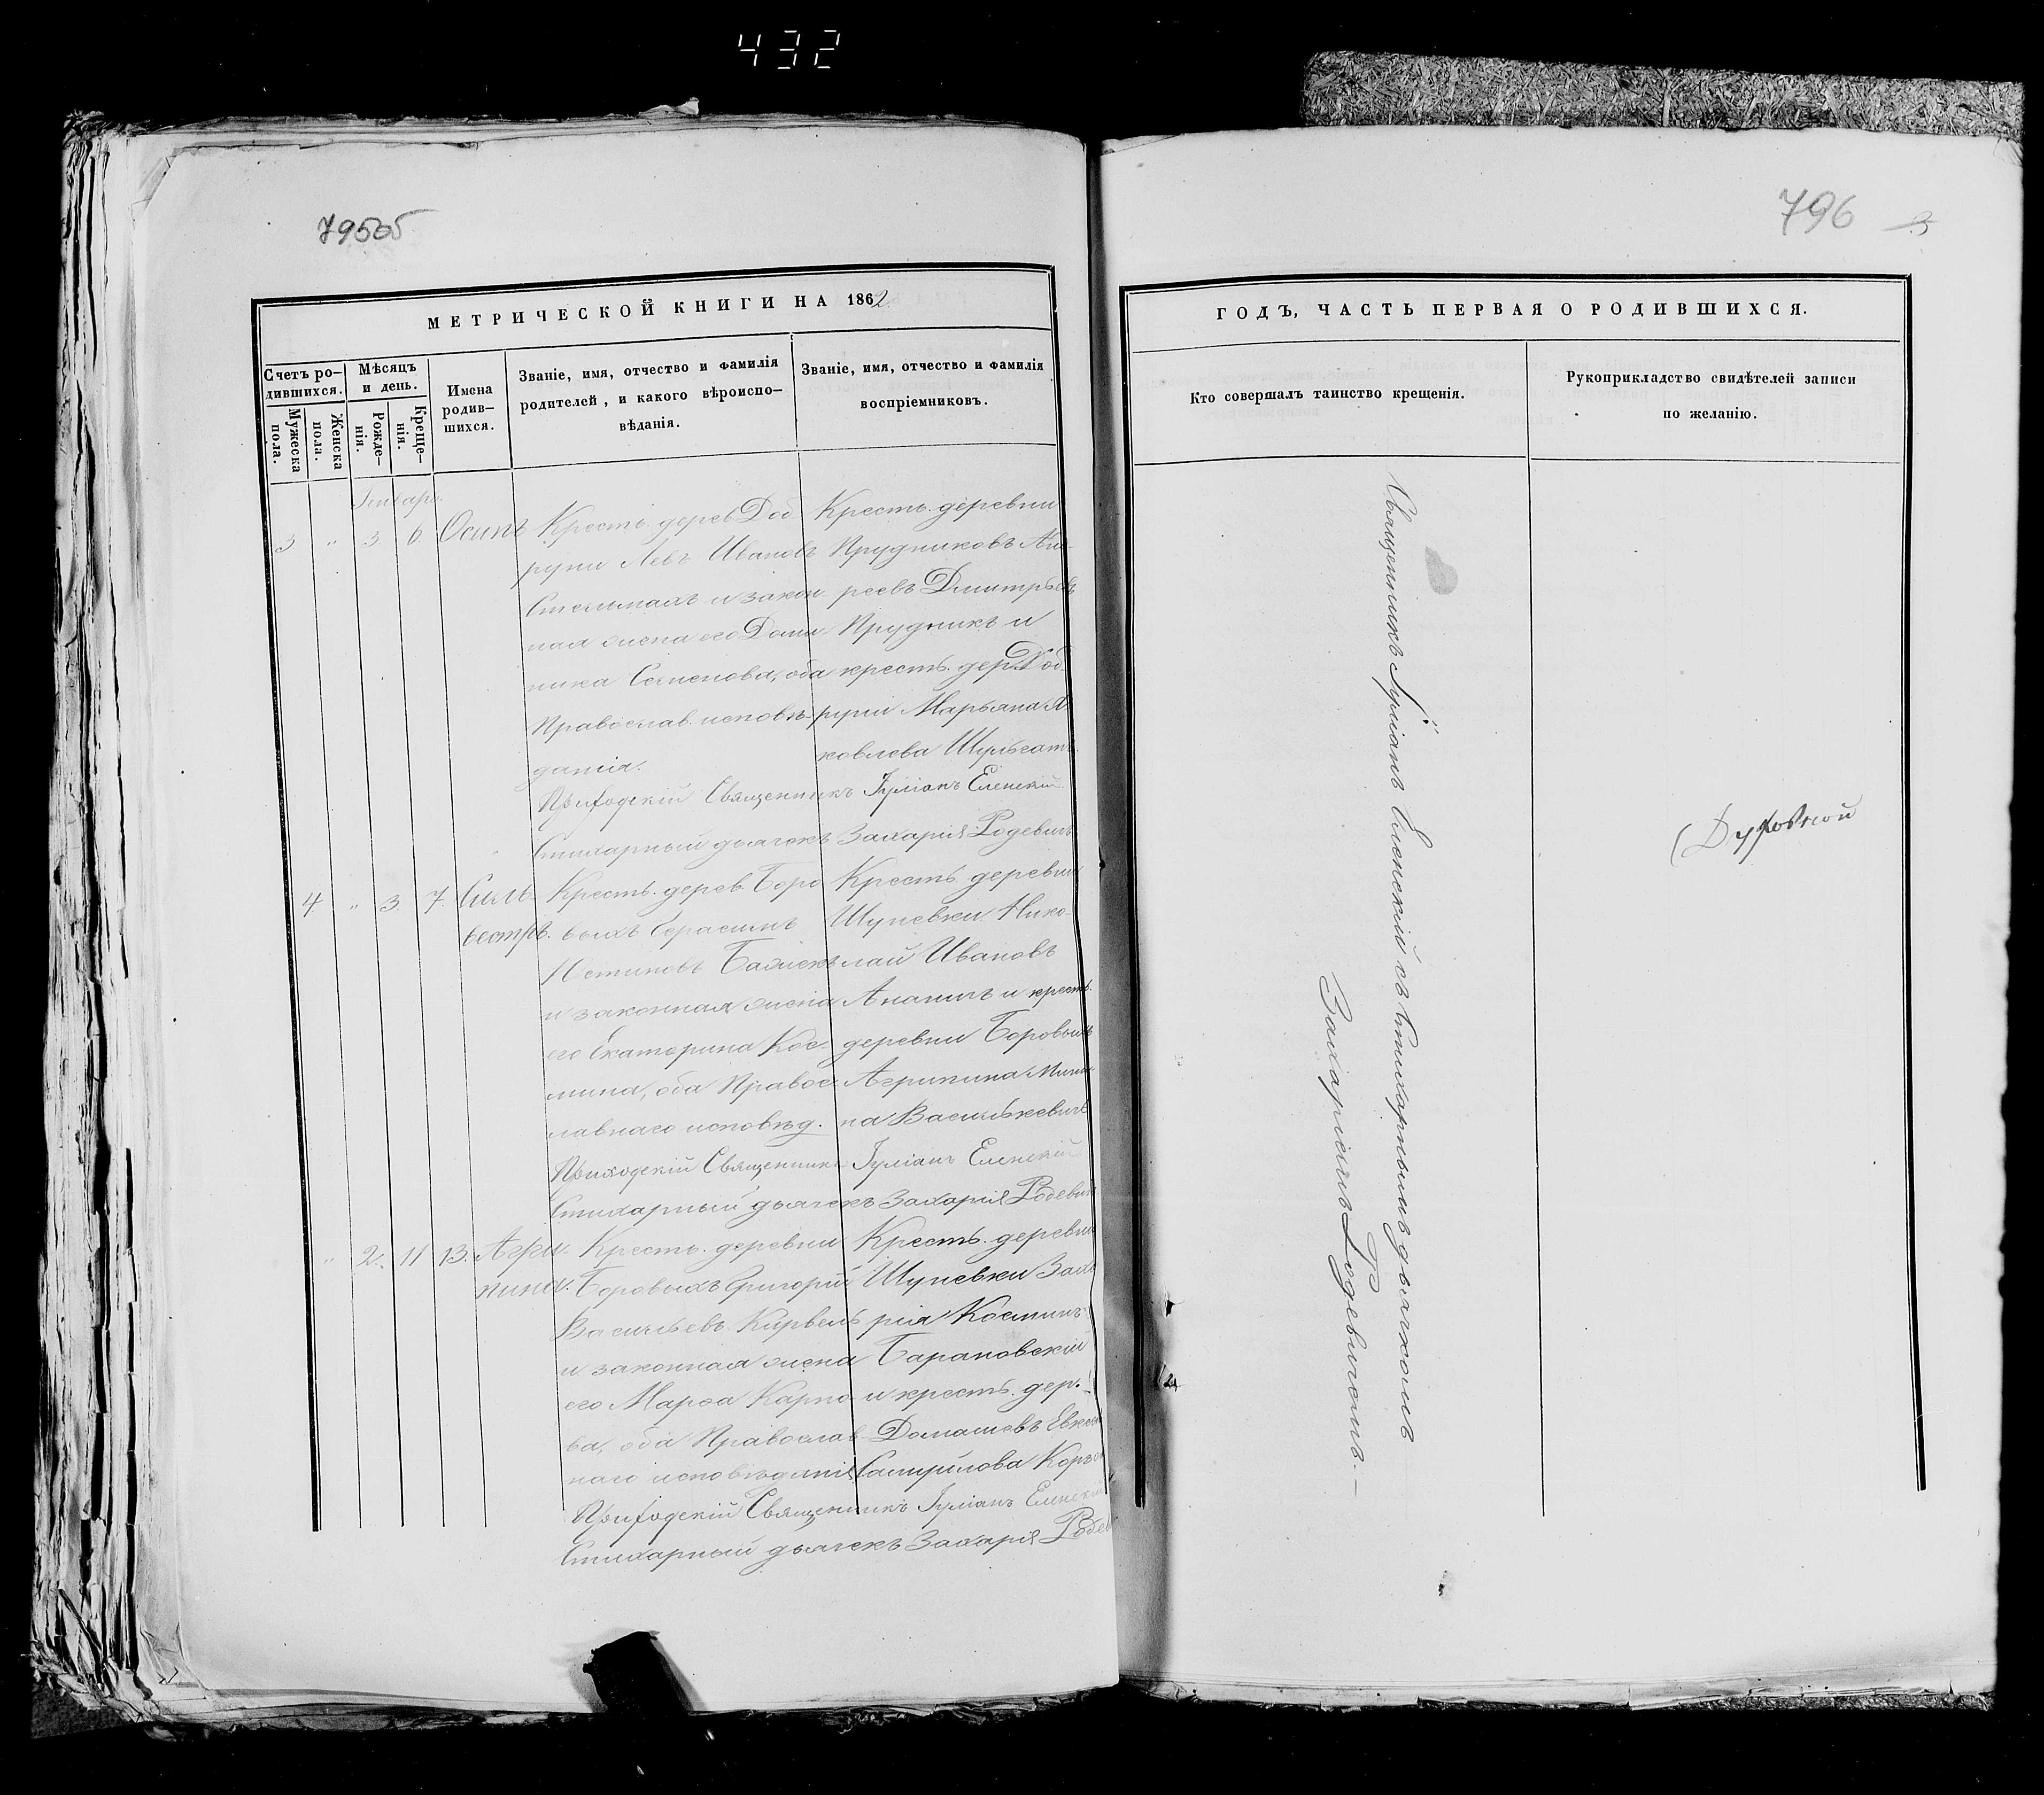 432
795об
796
МЕТРИЧЕСКОЙ КНИГИ НА 1862
Счетъ ро-
дившихся.
Мужеска
пола.
Женска
пола.
Мѣсяцъ
и день.
Рожде-
нія.
Креще-
нія.
Имена
родив-
шихся.
Званіе, имя, отчество и фамилія
родителей, и какого вѣроиспо-
вѣданія.
Званіе, имя, отчество и фамилія
воспріемниковъ.
Января
3 „ 3 6. Осипъ
Кресть. дерев. Доб
руни Левъ Ивановъ
Стельмахъ и закон
ная жена его Доми
ника Семенова, оба
Православ. исповѣ-
данія.
Кресть. деревни
Прудниковъ Анд
реевъ Дмитрьевъ
Прудникъ и
кресть. дер. Доб
руни Марьяна Я
ковлева Шульгатъ.
Приходскій Священникъ Іуліанъ Еленскій
Стихарный дьячекъ Захарія Родевичъ
4 „ 3. 7. Силь-
вестръ.
Кресть. дерев. Боро
выхъ Герасимъ
Юстиновъ
и законная жена
его Екатерина Кос-
мина, оба Правос
лавнаго исповѣд.
Кресть. деревни
Шуневки Нико-
лай Ивановъ
Ананичъ и кресть.
деревни Боровыхъ
Агрипина Мини
на Василькевичъ
Приходскій Священникъ Іуліанъ Еленскій
Стихарный дьячекъ Захарія Родевичъ
„ 2. 11 13. Агри-
пина.
Кресть. деревни
Боровыхъ Григорій
Васильевъ Кирвель
и законная жена
его Марѳа Карпо
ва, оба Православ
наго исповѣданія
Кресть. деревни
Шуневки Заха
рія Косминъ
Барановскій
и кресть. дер.
Домашевъ
Самуйлова
Приходскій Священникъ Іуліанъ Еленскій
Стихарный дьячекъ Захарія Родев
ГОДЪ, ЧАСТЬ ПЕРВАЯ О РОДИВШИХСЯ.
Кто совершалъ таинство крещенія.
Рукоприкладство свидѣтелей записи
по желанію.
Священникъ Іуліанъ Еленскій съ Стихарнымъ дьячкомъ
Захаріемъ Родевичемъ.—
(Духовной